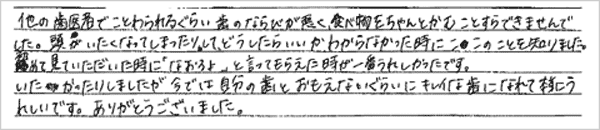 他の歯医者でことわられるぐらい歯のならびが悪く、食べ物をちゃんとかむことすらできませんで
した。頭がいたくなってしまったりして、どうしたらいいかわからなかった時にここのことを知りました。
初めて見ていただいた時に「なおるよ」と言ってもらえた時が一番うれしかったです。
いたかったりしましたが今では自分の歯と、おもえないぐらいにキレイな歯になれて本当にう
れしいです。ありがとうございました。